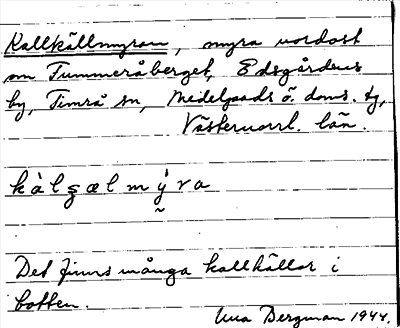 Kallkällmyran, myra nordost
om Tummeråberget, Edsgårdens
by, Timrå sn, Medelpads ö. doms. tg,
Västernorrl. län.
kàlʂælmýra
Det finns många kallkällor i
botten.
Una Bergman 1944.